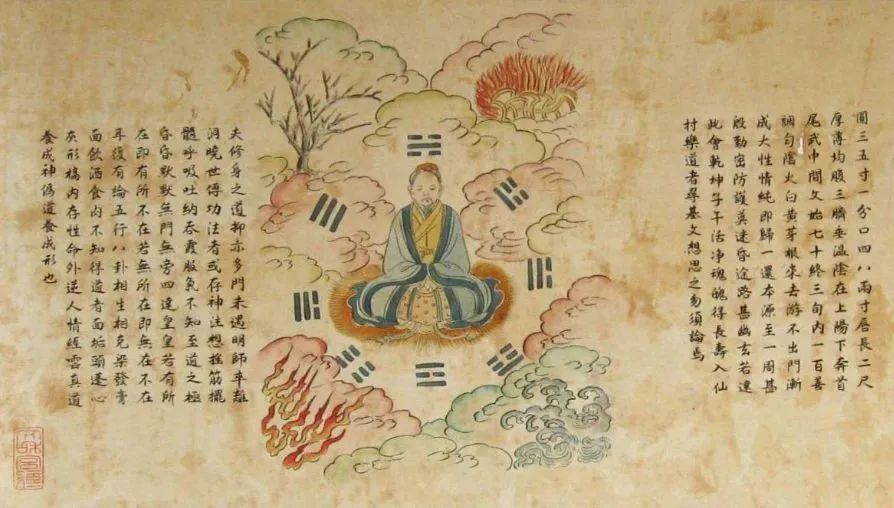 圓三五寸一分口四八兩寸唇長二尺
厚薄均腹三臍垂溫陰在上陽下奔首
尾武中間文始七十終三旬內一百善
調勻陰火白黃芽根來去游不出門漸
成大性情純即歸一還本源至一周甚
殷勤密防護莫迷昏途路甚幽玄若達
此會乾坤子午活净魂魄得長壽入仙
村樂道者尋基文想思之勿須論焉
夫修身之道抑亦多門未遇明師卒難
洞曉世傳功法者或存神注想搖筋擺
髓呼吸吐納吞霞服氣不知至道之極
昏昏默默無門無旁四達皇皇若有所
在即有所不在若無所在即無在不在
耳後有論五行八卦相生相克染發膏
面飲酒食肉不知得道者面垢頭蓬心
灰形槁內存性命外逆人情經雲真道
養成神偽道養成形也